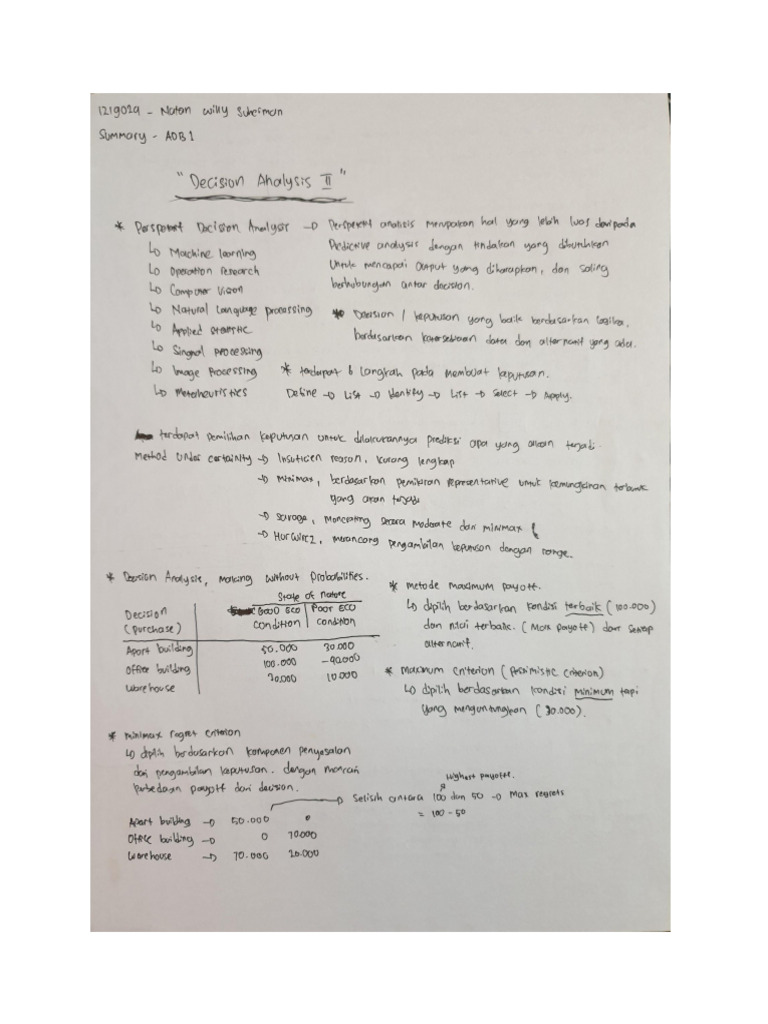 1219029 - Natan Willy Suherman
Summary - ADB 1
"Decision Analysis II"
* Perspetert Decision Analysis → Perspektif analisis merupakan hal yang lebih luas daripada
Pedictive analysis dengan tindakan yang dibutuhkan
untuk mencapai output yang diharapkan, dan saling
berhubungan antar decision.
↳ Machine learning
↳ Operation research
↳ Computer Vision
↳ Natural Language processing
↳ Applied statistic
↳ Singnal processing
↳ Image Processing
↳ Metaheuristics
* Decision / keputusan yang baik berdasarkan logika,
berdasarkan ketersediaan data dan alternatif yang ada.
* terdapat 6 langkah pada membuat keputusan.
Define → List → Identify → List → Select → Apply.
terdapat pemilihan keputusan untuk dilakukannya prediksi apa yang akan terjadi.
Method Under certainity → Insuficien reason, kurang lengkap
→ Minimax, berdasarkan pemikiran representative untuk kemungkinan terburuk
yang akan terjadi
→ Savage, Moncrating secara moderate dari minimax
→ Hurwircz, merancong pengambilan keputusan dengan range.
* Decision Analysis, Making without Probabilities.
State of nature
Decision
(purchase)
Good eco
condition
Poor eco
condition
Apart building 50.000 30.000
Office building 100.000 -40.000
Warehouse 30.000 10.000
* metode maximum payoff.
↳ dipilih berdasarkan kondisi terbaik (100.000)
dan nilai terbaik. (Max payoff) dari setiap
alternatif.
* Maximum criterion (Pesimistic criterion)
↳ dipilih berdasarkan kondisi minimum tapi
yang menguntungkan (30.000).
* Minimax regret criterion
↳ dipilih berdasarkan komponen penyesalan
dari pengambilan keputusan. dengan mencari
perbedaan payoff dari decision.
Highest payoffe.
→ Selisih antara 100 dan 50 → Max regrets
= 100 - 50
Apart building → 50.000 0
Office building → 0 70.000
Warehouse → 70.000 20.000